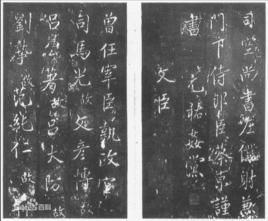 司空尚書左僕射兼
門下侍郎臣蔡京謹
書
元祐姦黨
文臣
曾任宰臣執政官
司馬光故文彥博故
呂公著故呂大防故
劉摯故范純仁故
百科